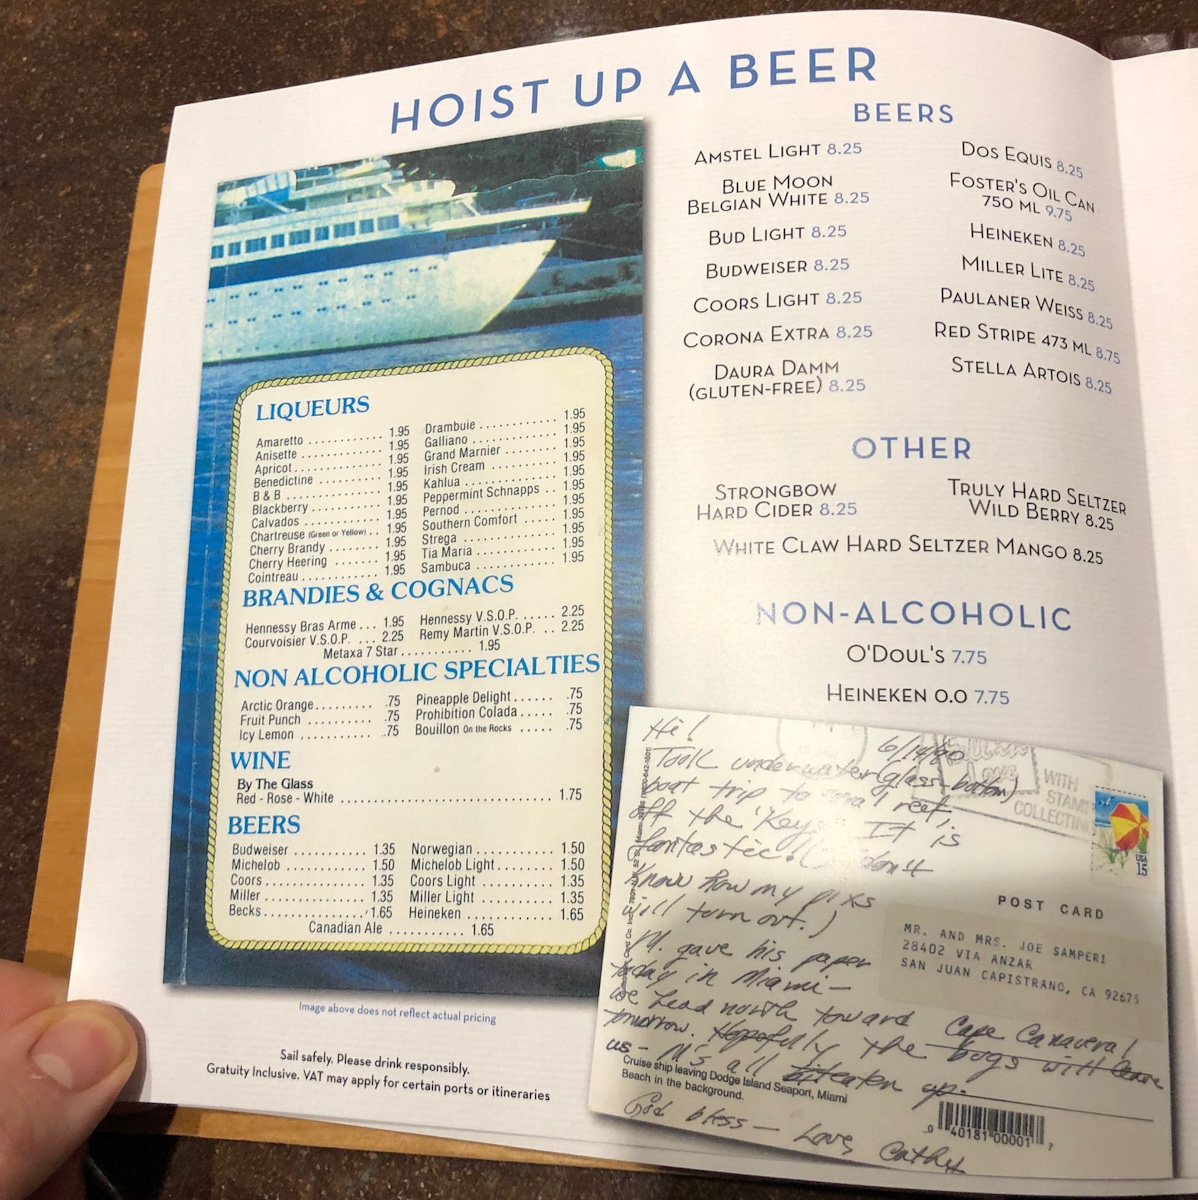 HOIST UP A BEER
LIQUEURS
Amaretto ............ 1.95
Anisette ............ 1.95
Apricot ............ 1.95
Benedictine ............ 1.95
B & B ............ 1.95
Blackberry ............ 1.95
Calvados ............ 1.95
Chartreuse (Green or Yellow) .. 1.95
Cherry Brandy ........ 1.95
Cherry Heering ....... 1.95
Cointreau ............ 1.95
Drambuie ........... 1.95
Galliano ............ 1.95
Grand Marnier ........ 1.95
Irish Cream .......... 1.95
Kahlua .............. 1.95
Peppermint Schnapps .. 1.95
Pernod .............. 1.95
Southern Comfort ..... 1.95
Strega .............. 1.95
Tia Maria ........... 1.95
Sambuca ............ 1.95
BRANDIES & COGNACS
Hennessy Bras Arme ... 1.95
Courvoisier V.S.O.P. ... 2.25
Hennessy V.S.O.P. ...... 2.25
Remy Martin V.S.O.P. .. 2.25
Metaxa 7 Star ........... 1.95
NON ALCOHOLIC SPECIALTIES
Arctic Orange ......... .75
Fruit Punch .......... .75
Icy Lemon ........... .75
Pineapple Delight ...... .75
Prohibition Colada ..... .75
Bouillon On the Rocks ..... .75
WINE
By The Glass
Red - Rose - White .............................. 1.75
BEERS
Budweiser ........... 1.35
Michelob ............ 1.50
Coors ............... 1.35
Miller ............... 1.35
Becks ............... 1.65
Norwegian ........... 1.50
Michelob Light ........ 1.50
Coors Light .......... 1.35
Miller Light .......... 1.35
Heineken ............ 1.65
Canadian Ale .......... 1.65
Image above does not reflect actual pricing
Sail safely. Please drink responsibly.
Gratuity Inclusive. VAT may apply for certain ports or itineraries
BEERS
AMSTEL LIGHT 8.25
BLUE MOON
BELGIAN WHITE 8.25
BUD LIGHT 8.25
BUDWEISER 8.25
COORS LIGHT 8.25
CORONA EXTRA 8.25
DAURA DAMM
(GLUTEN-FREE) 8.25
DOS EQUIS 8.25
FOSTER'S OIL CAN
750 ML 9.75
HEINEKEN 8.25
MILLER LITE 8.25
PAULANER WEISS 8.25
RED STRIPE 473 ML 8.75
STELLA ARTOIS 8.25
OTHER
STRONGBOW
HARD CIDER 8.25
TRULY HARD SELTZER
WILD BERRY 8.25
WHITE CLAW HARD SELTZER MANGO 8.25
NON-ALCOHOLIC
O'DOUL'S 7.75
HEINEKEN 0.0 7.75
Hi!
6/14/80
Took underwater (glass-bottom)
boat trip to reef,
off the 'Keys It is
fantastic! ( don't
know how my pixs
will turn out.)
M. gave his paper
today in Miami -
we head north toward Cape Canaveral
tomorrow. Hopefully the bugs will leave
us - M's all eaten up.
God bless - Love, Cathy
WITH
STAMP
COLLECTING
USA
15
POST CARD
MR. AND MRS. JOE SAMPERI
28402 VIA ANZAR
SAN JUAN CAPISTRANO, CA 92675
Cruise ship leaving Dodge Island Seaport, Miami
Beach in the background.
0 40181 00001 7